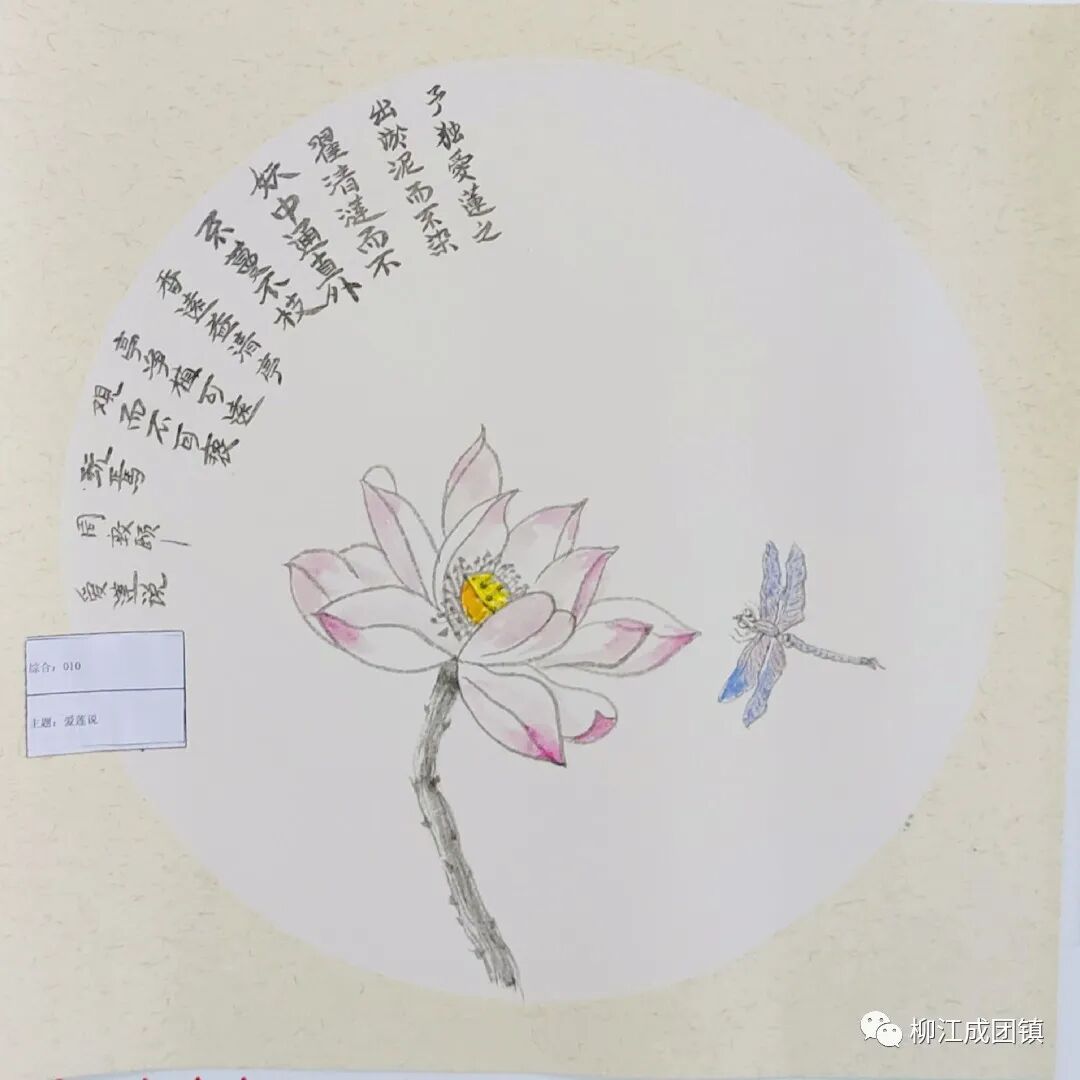 予独爱莲之
出淤泥而不染
濯清涟而不
妖中通直外
不蔓不枝
香遠益清亭
亭净植可遠
观而不可亵
玩焉
周敦颐
爱莲说
综合：010
主题：爱莲说
柳江成团镇